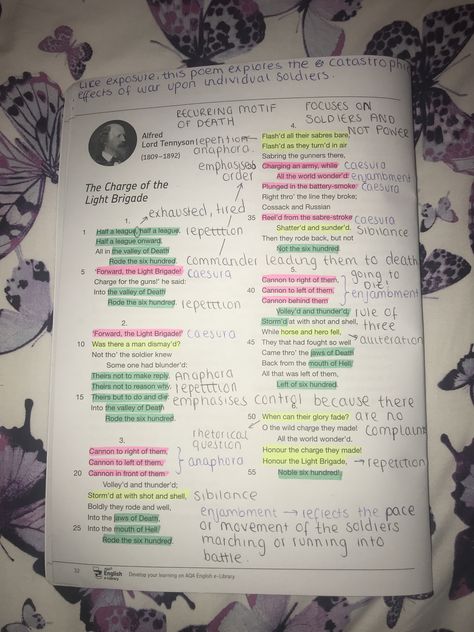 Like exposure, this poem explores the catastrophic
effects of war upon individual soldiers.
RECURRING MOTIF
OF DEATH
FOCUSES ON
SOLDIERS AND
NOT POWER
Alfred
Lord Tennyson
(1809–1892)
The Charge of the
Light Brigade
exhausted, tired
1.
1 Half a league, half a league, repetition
Half a league onward,
All in the valley of Death
Rode the six hundred.
commander leading them to death
5 'Forward, the Light Brigade! caesura
Charge for the guns!' he said:
Into the valley of Death
Rode the six hundred. repetition
2.
'Forward, the Light Brigade!' caesura
10 Was there a man dismay'd?
Not tho' the soldier knew
Some one had blunder'd:
Theirs not to make reply, Anaphora
Theirs not to reason why, repetition
15 Theirs but to do and die: emphasises control because there
are no
complaint
Into the valley of Death
Rode the six hundred.
rhetorical
question
3.
Cannon to right of them,
Cannon to left of them, anaphora
20 Cannon in front of them
Volley'd and thunder'd;
Storm'd at with shot and shell, Sibilance
Boldly they rode and well,
Into the jaws of Death,
25 Into the mouth of Hell
Rode the six hundred.
4.
repetition Flash'd all their sabres bare,
anaphora. Flash'd as they turn'd in air
Sabring the gunners there,
emphasises
order
Charging an army, while caesura
All the world wonder'd: enjambment
Plunged in the battery-smoke caesura
Right thro' the line they broke;
Cossack and Russian
35 Reel'd from the sabre-stroke caesura
Shatter'd and sunder'd. Sibilance
Then they rode back, but not
Not the six hundred.
5.
Cannon to right of them, going to
die!
40 Cannon to left of them, enjambment
Cannon behind them
Volley'd and thunder'd; rule of
three
Storm'd at with shot and shell,
While horse and hero fell,
45 They that had fought so well
Came thro' the jaws of Death
Back from the mouth of Hell,
All that was left of them,
Left of six hundred.
50 When can their glory fade?
O the wild charge they made!
All the world wonder'd.
Honour the charge they made!
Honour the Light Brigade, repetition
55 Noble six hundred!
enjambment → reflects the pace
or movement of the soldiers
marching or running into
battle.
32 English e-Library Develop your learning on AQA English e-Library